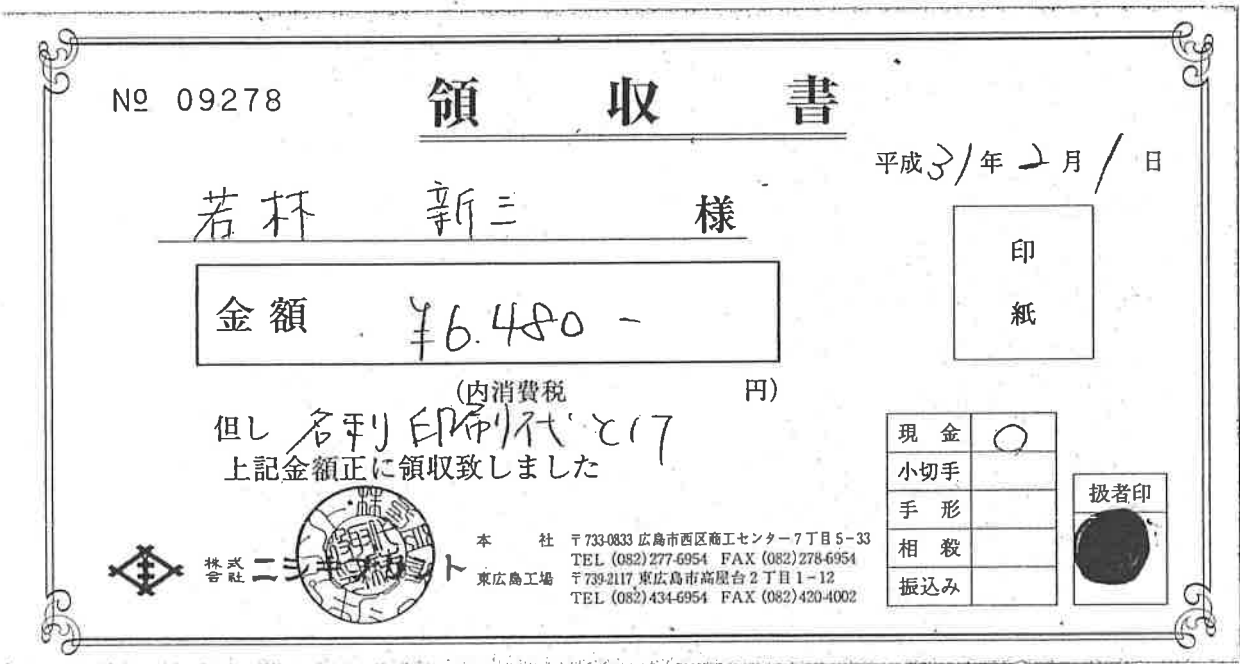 № 09278
領収書
平成31年2月1日
若林 新三 様
印紙
金額 ¥6.480-
(内消費税 円)
但し 名刺印刷代として
上記金額正に領収致しました
現金 ○
小切手
手形
相殺
振込み
扱者印
株式会社
本社 〒733-0833 広島市西区商工センター7丁目5-33
TEL (082)277-6954 FAX (082)278-6954
東広島工場 〒739-2117 東広島市高屋台2丁目1-12
TEL (082)434-6954 FAX (082)420-4002